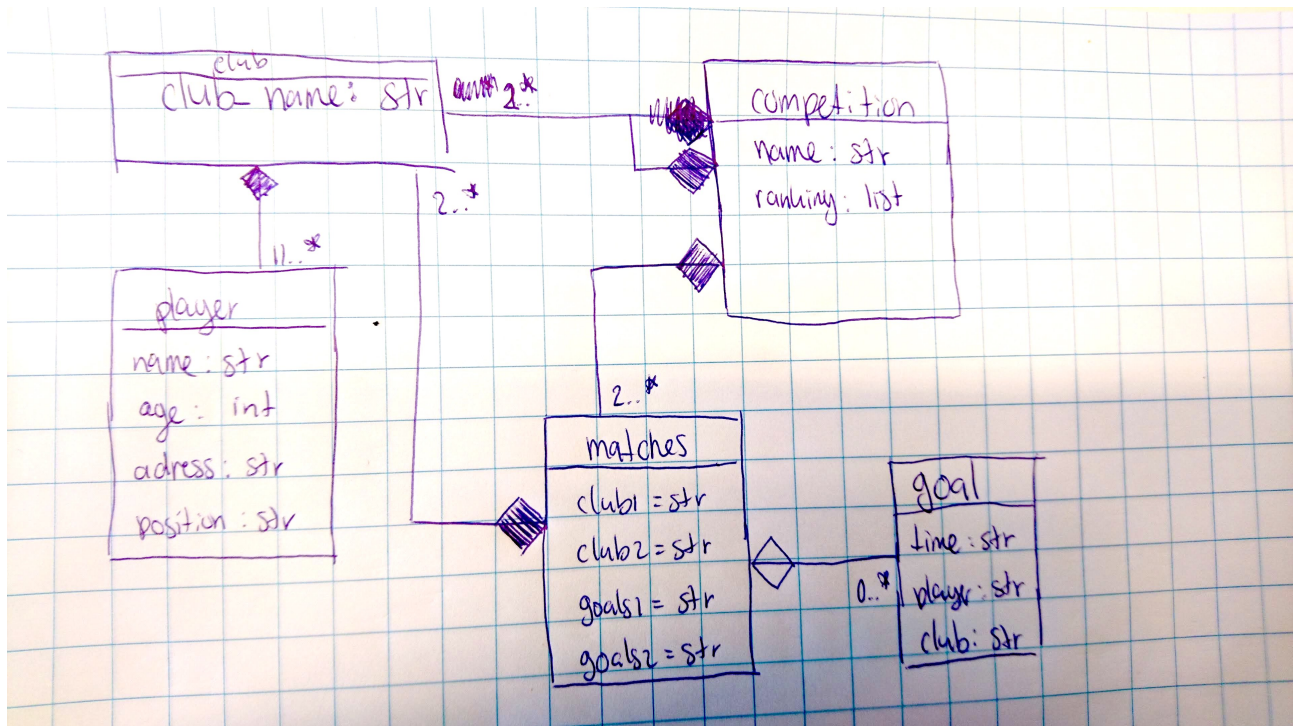 club
club_name: str
2..*
competition
name: str
ranking: list
2..*
11..*
player
name: str
age: int
adress: str
position: str
2..*
matches
club1 = str
club2 = str
goals1 = str
goals2 = str
0..*
goal
time: str
player: str
club: str